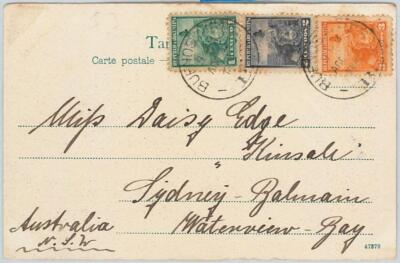 Tar
Carte postale —
Miss Daisy Edge
"Kinsale"
Sydney-Balmain
Waterview-Bay
Australia
N.S.W
47879